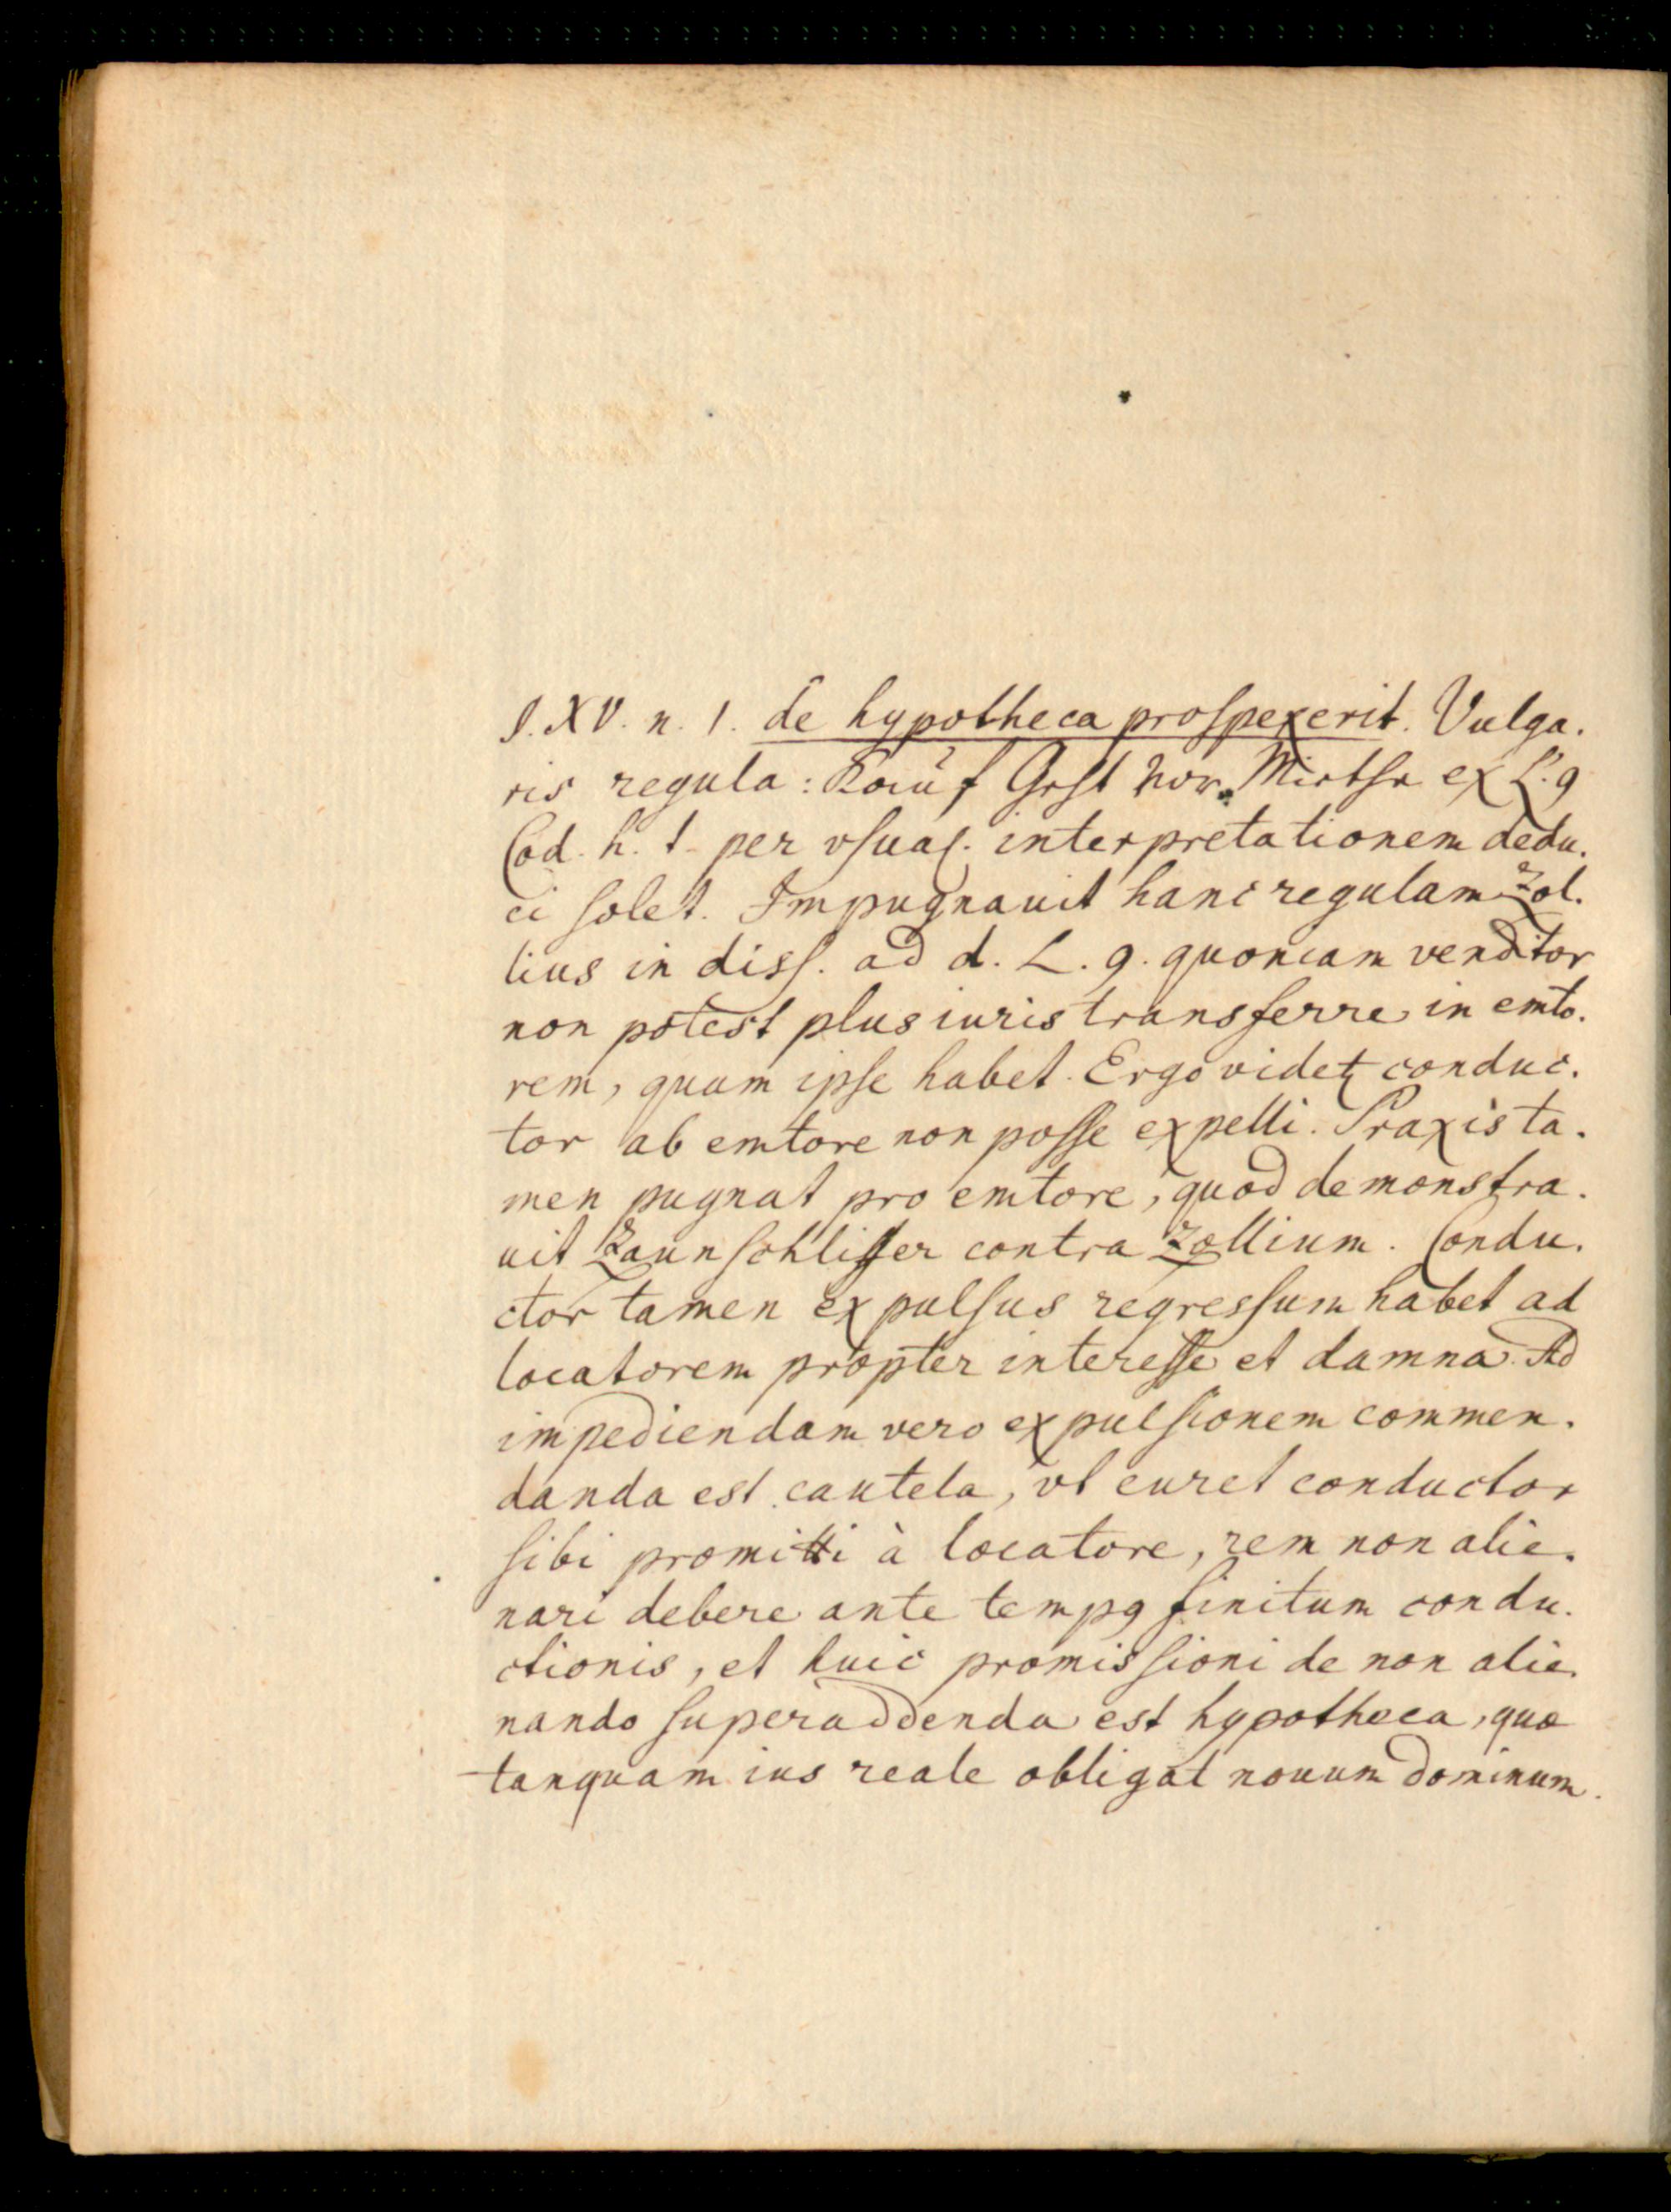 §. XV. n. 1. de hypotheca proſpexerit. Vulga.
ris regula: Kauf Geht vor Miethe ex L. 9
Cod. h. t. per vſual. interpretationem dedu.
ci ſolet. Impugnauit hanc regulam Zol.
lius in disſ. ad d. L. 9. quoniam venditor
non potest plus iuris transferre in emto.
rem, quam ipſe habet. Ergo videt conduc.
tor ab emtore non poſſe expelli. Praxis ta.
men pugnat pro emtore, quod demonstra.
uit Zaunſchliffer contra Zollium. Condu.
ctor tamen expulſus regresſum habet ad
locatorem propter intereſſe et damna. Ad
impediendam vero expulſionem commen.
danda est cautela, vt curet conductor
ſibi promitti à locatore, rem non alie.
nari debere ante tempꝰ finitum condu.
ctionis, et huic promisſioni de non alie.
nando ſuperaddenda est hypotheca, quæ
tanquam ius reale obligat nouum dominum.